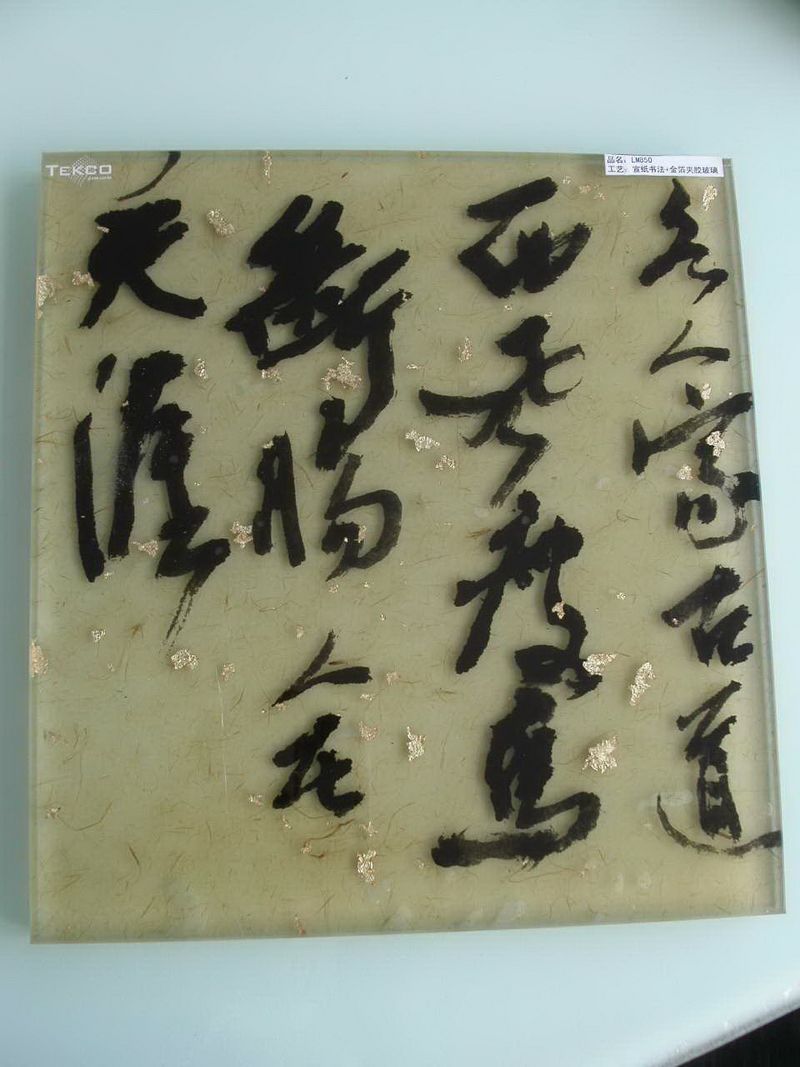 TEKCO
品名：LM850
工艺：宣纸书法+金箔夹胶玻璃
水人家古道
西风瘦馬
斷腸人在
天涯